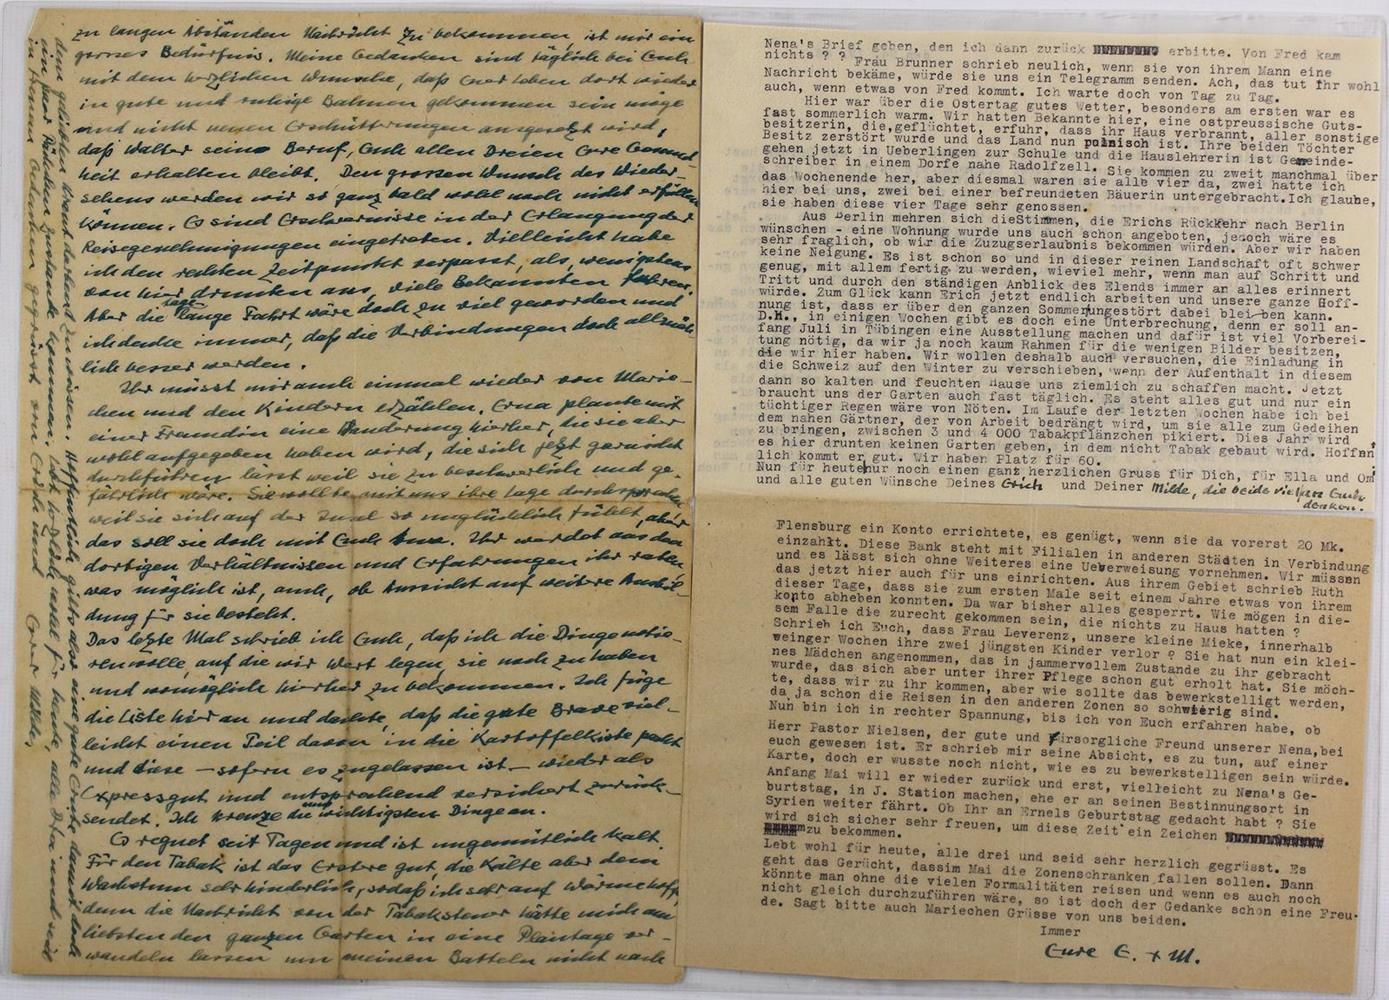 zu langen Abständen Nachricht zu bekommen, ist mir ein
grosses Bedürfnis. Meine Gedanken sind täglich bei Euch
mit dem herzlichen Wunsche, daß Euer Leben dort wieder
in gute und ruhige Bahnen gekommen sein möge
und nicht neuen Erschütterungen ausgesetzt wird,
daß Walter seine Beruf, Euch allen Dreien Eure Gesund-
heit erhalten bleibt. Den grossen Wunsch des Wieder-
sehens werden wir so ganz bald wohl noch nicht erfüllen
können. Es sind Erschwernisse in der Erlangung der
Reisegenehmigungen eingetreten. Vielleicht habe
ich den rechten Zeitpunkt verpasst, als wenigstens
von hier drunten aus, viele Bekannten fuhren.
Aber die lange Fahrt wäre doch zu viel geworden und
ich denke immer, daß die Verbindungen doch allmäh-
lich besser werden.
Ihr müsst mir auch einmal wieder von Marie-
chen und den Kindern erzählen. Erna plante mit
einer Freundin eine Wanderung hierher, die sie aber
wohl aufgegeben haben wird, die sich jetzt garnicht
durchführen lässt weil sie zu beschwerlich und ge-
fährlich wäre. Sie wollte mit uns ihre Lage durchsprechen
weil sie sich auf der Insel so unglücklich fühlt, aber
das soll sie doch mit Euch tun. Ihr werdet aus den
dortigen Verhältnissen und Erfahrungen ihr raten
was möglich ist, auch, ob Aussicht auf weitere Ausbil-
dung für sie besteht.
Das letzte Mal schrieb ich Euch, daß ich die Dinge notie-
ren wolle, auf die wir Wert legen, sie noch zu haben
und womöglich hierher zu bekommen. Ich füge
die Liste hier an und dachte, daß die gute Brave viel-
leicht einen Teil davon in die Kartoffelkiste packt
und diese – sofern es zugelassen ist – wieder als
Expressgut und entsprechend versichert zurück-
sendet. Ich kreuze die wichtigsten Dinge an.
Es regnet seit Tagen und ist ungemütlich kalt.
Für den Tabak ist das Erstere gut, die Kälte aber dem
Wachstum sehr hinderlich, sodaß ich sehr auf Wärme hoff,
denn die Nachricht von der Tabaksteuer hätte mich am
liebsten den ganzen Garten in eine Plantage ver-
wandeln lassen um meinen Basteln nicht nach
Nena's Brief geben, den ich dann zurück erbitte. Von Fred kam
nichts ? ? Frau Brunner schrieb neulich, wenn sie von ihrem Mann eine
Nachricht bekäme, würde sie uns ein Telegramm senden. Ach, das tut Ihr wohl
auch, wenn etwas von Fred kommt. Ich warte doch von Tag zu Tag.
Hier war über die Ostertag gutes Wetter, besonders am ersten war es
fast sommerlich warm. Wir hatten Bekannte hier, eine ostpreussische Guts-
besitzerin, die,geflüchtet, erfuhr, dass ihr Haus verbrannt, aller sonstige
Besitz zerstört wurde und das Land nun polnisch ist. Ihre beiden Töchter
gehen jetzt in Ueberlingen zur Schule und die Hauslehrerin ist Gemeinde-
schreiber in einem Dorfe nahe Radolfzell. Sie kommen zu zweit manchmal über
das Wochenende her, aber diesmal waren sie alle vier da, zwei hatte ich
hier bei uns, zwei bei einer befreundeten Bäuerin untergebracht.Ich glaube,
sie haben diese vier Tage sehr genossen.
Aus Berlin mehren sich dieStimmen, die Erichs Rückkehr nach Berlin
wünschen - eine Wohnung wurde uns auch schon angeboten, jedoch wäre es
sehr fraglich, ob wir die Zuzugserlaubnis bekommen würden. Aber wir haben
keine Neigung. Es ist schon so und in dieser reinen Landschaft oft schwer
genug, mit allem fertig zu werden, wieviel mehr, wenn man auf Schritt und
Tritt und durch den ständigen Anblick des Elends immer an alles erinnert
würde. Zum Glück kann Erich jetzt endlich arbeiten und unsere ganze Hoff-
nung ist, dass er über den ganzen Sommerungestört dabei blei-ben kann.
D.H., in einigen Wochen gibt es doch eine Unterbrechung, denn er soll an-
fang Juli in Tübingen eine Ausstellung machen und dafür ist viel Vorberei-
tung nötig, da wir ja noch kaum Rahmen für die wenigen Bilder besitzen,
die wir hier haben. Wir wollen deshalb auch versuchen, die Einladung in
die Schweiz auf den Winter zu verschieben, wenn der Aufenthalt in diesem
dann so kalten und feuchten Hause uns ziemlich zu schaffen macht. Jetzt
braucht uns der Garten auch fast täglich. Es steht alles gut und nur ein
tüchtiger Regen wäre von Nöten. Im Laufe der letzten Wochen habe ich bei
dem nahen Gärtner, der von Arbeit bedrängt wird, um sie alle zum Gedeihen
zu bringen, zwischen 3 und 4 000 Tabakpflänzchen pikiert. Dies Jahr wird
es hier drunten keinen Garten geben, in dem nicht Tabak gebaut wird. Hoffen
lich kommt er gut. Wir haben Platz für 60.
Nun für heute nur noch einen ganz herzlichen Gruss für Dich, für Ella und Om
und alle guten Wünsche Deines Erich und Deiner Milde, die beide viel an Euch
denken.
Flensburg ein Konto errichtete, es genügt, wenn sie da vorerst 20 Mk.
einzahlt. Diese Bank steht mit Filialen in anderen Städten in Verbindung
und es lässt sich ohne Weiteres eine Ueberweisung vornehmen. Wir müssen
das jetzt hier auch für uns einrichten. Aus ihrem Gebiet schrieb Ruth
dieser Tage, dass sie zum ersten Male seit einem Jahre etwas von ihrem
konto abheben konnten. Da war bisher alles gesperrt. Wie mögen in die-
sem Falle die zurecht gekommen sein, die nichts zu Haus hatten ?
Schrieb ich Euch, dass Frau Leverenz, unsere kleine Mieke, innerhalb
weinger Wochen ihre zwei jüngsten Kinder verlor ? Sie hat nun ein klei-
nes Mädchen angenommen, das in jammervollem Zustande zu ihr gebracht
wurde, das sich aber unter ihrer Pflege schon gut erholt hat. Sie möch-
te, dass wir zu ihr kommen, aber wie sollte das bewerkstelligt werden,
da ja schon die Reisen in den anderen Zonen so schwierig sind.
Nun bin ich in rechter Spannung, bis ich von Euch erfahren habe, ob
Herr Pastor Nielsen, der gute und fürsorgliche Freund unserer Nena,bei
euch gewesen ist. Er schrieb mir seine Absicht, es zu tun, auf einer
Karte, doch er wusste noch nicht, wie es zu bewerkstelligen sein würde.
Anfang Mai will er wieder zurück und erst, vielleicht zu Nena's Ge-
burtstag, in J. Station machen, ehe er an seinen Bestinnungsort in
Syrien weiter fährt. Ob Ihr an Ernels Geburtstag gedacht habt ? Sie
wird sich sicher sehr freuen, um diese Zeit ein Zeichen
zu bekommen.
Lebt wohl für heute, alle drei und seid sehr herzlich gegrüsst. Es
geht das Gerücht, dassim Mai die Zonenschranken fallen sollen. Dann
könnte man ohne die vielen Formalitäten reisen und wenn es auch noch
nicht gleich durchzuführen wäre, so ist doch der Gedanke schon eine Freu-
de. Sagt bitte auch Mariechen Grüsse von uns beiden.
Immer
Eure E. + M.